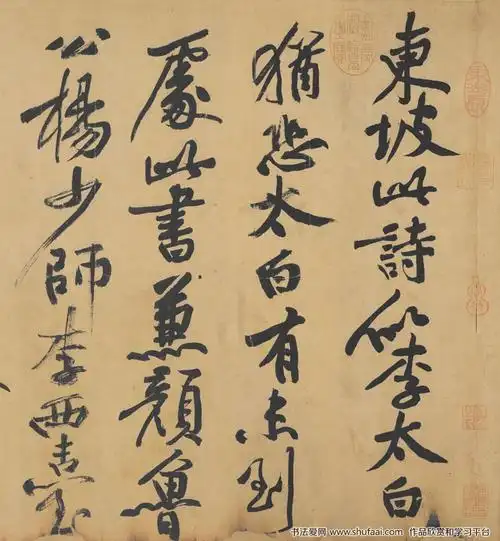 東坡此詩似李太白
猶恐太白有未到
處此書兼顔魯
公楊少師李西臺
书法爱网 www.shufaai.com 作品欣赏和学习平台